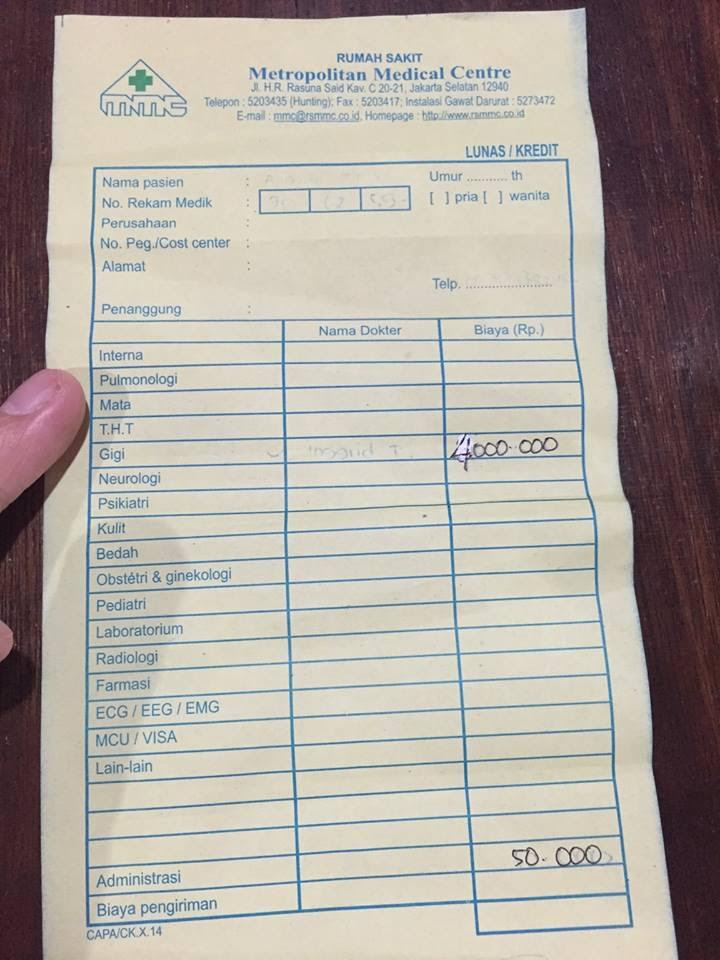 mmc
RUMAH SAKIT
Metropolitan Medical Centre
Jl. H.R. Rasuna Said Kav. C 20-21, Jakarta Selatan 12940
Telepon : 5203435 (Hunting); Fax : 5203417; Instalasi Gawat Darurat : 5273472
E-mail : mmc@rsmmc.co.id, Homepage : http://www.rsmmc.co.id
LUNAS / KREDIT
Nama pasien : Umur ........... th
No. Rekam Medik : [ ] pria [ ] wanita
Perusahaan :
No. Peg./Cost center :
Alamat :
Telp. ........................
Penanggung :
Nama Dokter Biaya (Rp.)
Interna
Pulmonologi
Mata
T.H.T
Gigi Ingrid T. 4000.000
Neurologi
Psikiatri
Kulit
Bedah
Obstétri & ginekologi
Pediatri
Laboratorium
Radiologi
Farmasi
ECG / EEG / EMG
MCU / VISA
Lain-lain
Administrasi 50.000
Biaya pengiriman
CAPA/CK.X.14